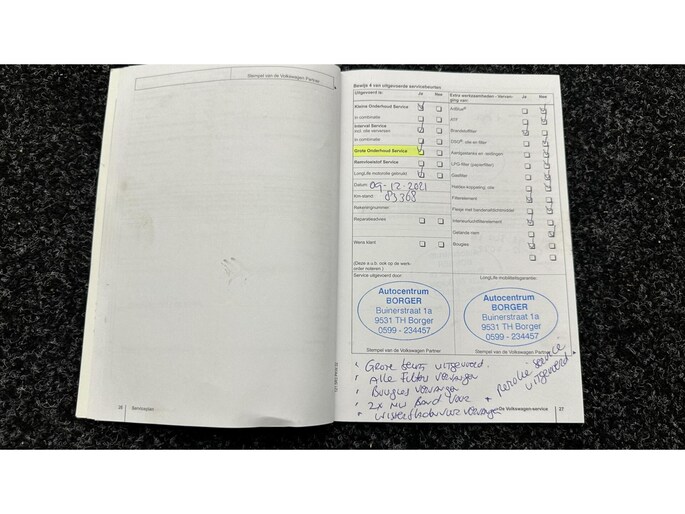 Stempel van de Volkswagen Partner
28 Serviceplan
Bewijs 4 van uitgevoerde servicebeurten
Uitgevoerd is: Ja Nee
Kleine Onderhoud Service
in combinatie
Interval Service
incl. olie verversen
in combinatie
Grote Onderhoud Service
Remvloeistof Service
LongLife motorolie gebruikt
Datum: 09-12-2021
Km-stand: 83368
Rekeningnummer:
Reparatieadvies
Wens klant
(Deze a.u.b. ook op de werk-
order noteren.)
Service uitgevoerd door:
Autocentrum
BORGER
Buinerstraat 1a
9531 TH Borger
0599 - 234457
Stempel van de Volkswagen Partner
Extra werkzaamheden - Vervan-
ging van: Ja Nee
AdBlue®
ATF
Brandstoffilter
DSG®: olie en filter
Aandrijfriemen
LPG-filter (papierfilter)
Gasfilter
Haldex-koppeling: olie
Filterelement
Interieurluchtfilterelement
Getande riem
Bougies
LongLife mobiliteitsgarantie:
Autocentrum
BORGER
Buinerstraat 1a
9531 TH Borger
0599 - 234457
Stempel van de Volkswagen Partner
Grote beurt uitgevoerd
Alle Filters vervangen
Bougies vervangen
2x nw Band voor
vervangen
service
uitgevoerd
De Volkswagen-service 27